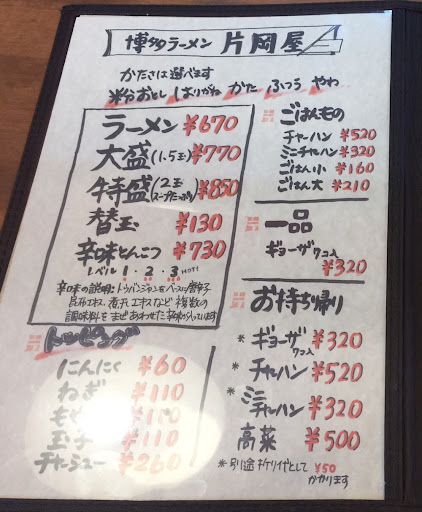 博多ラーメン 片岡屋
かたさは選べます
粉おとし はりがね かた ふつう やわ
ラーメン ¥670
大盛(1.5玉) ¥770
特盛(2玉 スープたっぷり) ¥850
替玉 ¥130
辛味とんこつ ¥730
レベル 1・2・3 HOT!
辛味の説明:トウバンジャンをベースに唐辛子
昆布エキス、煮干エキスなど、複数の
調味料をまぜあわせた辛味が入っています
トッピング
にんにく ¥60
ねぎ ¥110
もやし ¥110
玉子 ¥110
チャーシュー ¥260
ごはんもの
チャーハン ¥520
ミニチャーハン ¥320
ごはん小 ¥160
ごはん大 ¥210
一品
ギョーザ 7コ入
¥320
お持ち帰り
ギョーザ 7コ入 ¥320
* チャーハン ¥520
* ミニチャーハン ¥320
高菜 ¥500
*別途折り代として ¥50
かかります